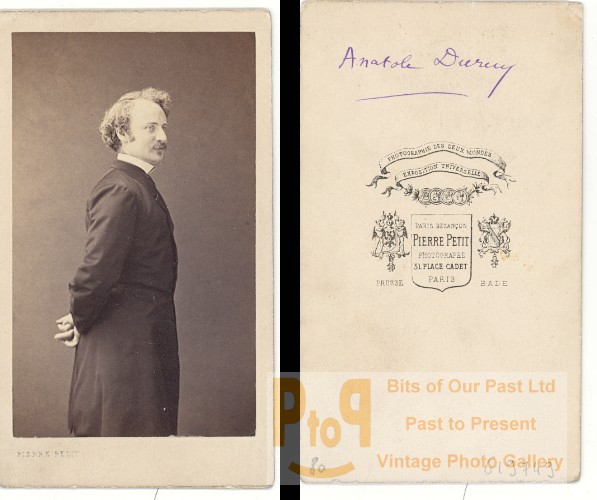 PIERRE PETIT
Anatole Duruy
PHOTOGRAPHIE DES DEUX MONDES
EXPOSITION UNIVERSELLE
PARIS BEZANÇON
PIERRE PETIT
PHOTOGRAPHE
31, PLACE CADET
PARIS
PRUSSE
BADE
PtoP
Bits of Our Past Ltd
Past to Present
Vintage Photo Gallery
80